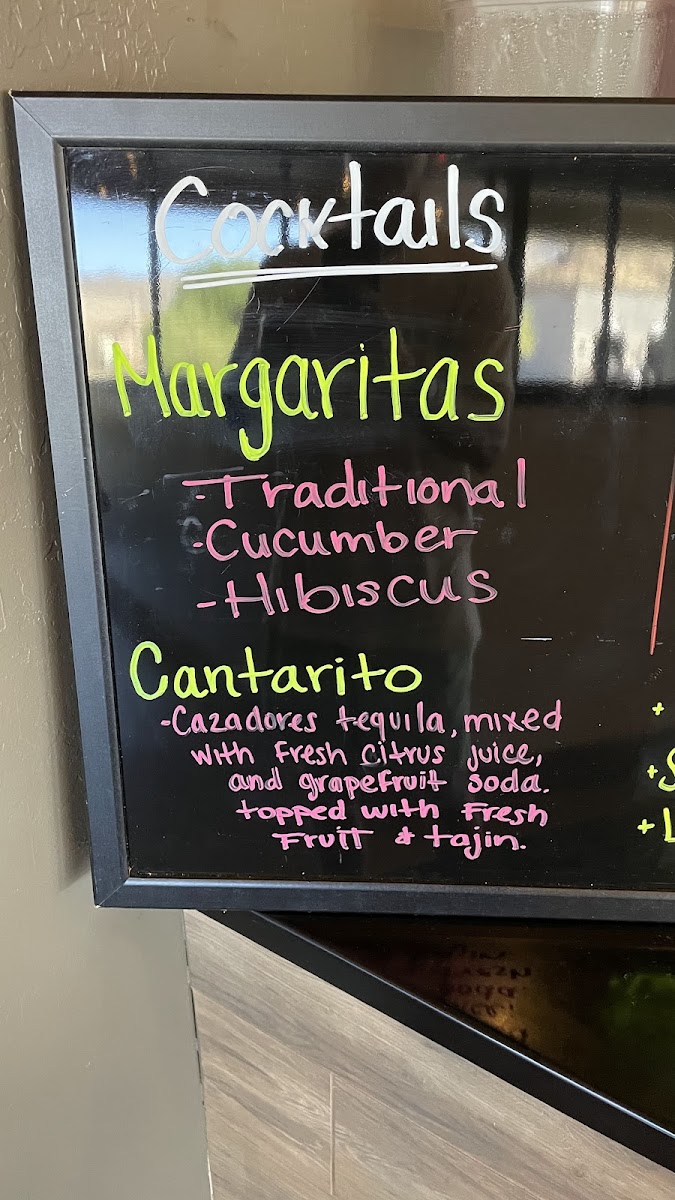 Cocktails
Margaritas
-Traditional
-Cucumber
-Hibiscus
Cantarito
-Cazadores tequila, mixed
with fresh citrus juice,
and grapefruit soda.
topped with fresh
fruit & tajin.
+
+
+